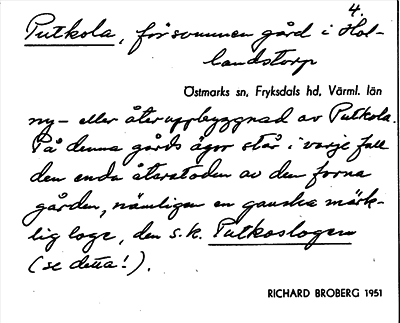 4.
Putkola, försvunnen gård i Hol-
landstorp
Östmarks sn, Fryksdals hd, Värml. län
ny- eller återuppbyggnad av Putkola.
På denna gårds ägor står i varje fall
den enda återstoden av den forna
gården, nämligen en ganska märk-
lig loge, den s.k. Putkoslogen
(se detta!).
RICHARD BROBERG 1951